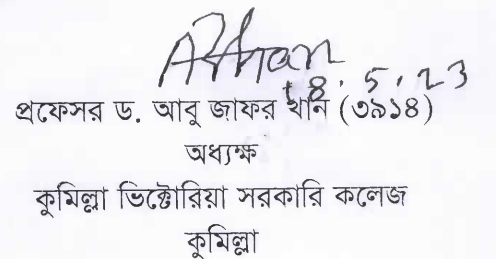 18.5.23
প্রফেসর ড. আবু জাফর খান (৩৯১৪)
অধ্যক্ষ
কুমিল্লা ভিক্টোরিয়া সরকারি কলেজ
কুমিল্লা